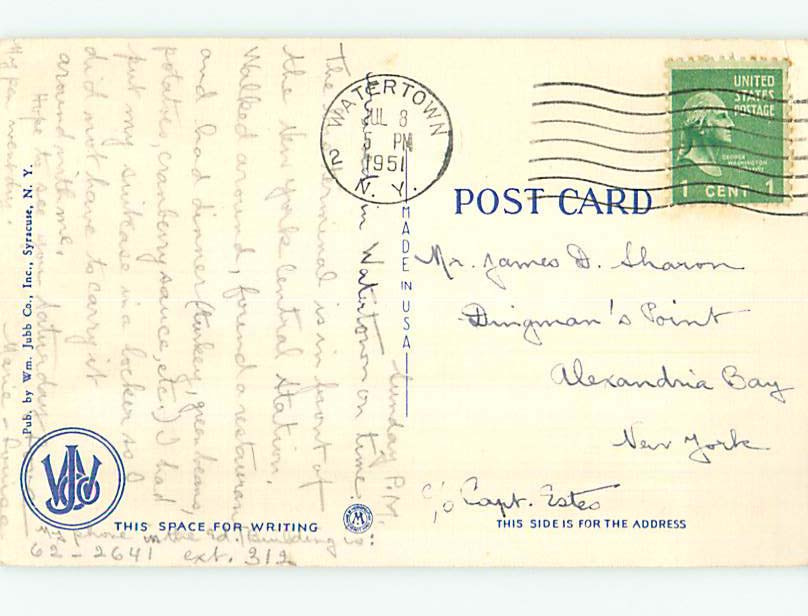 WATERTOWN
2
JUL 8
5 PM
1951
N. Y.
UNITED
STATES
POSTAGE
GEORGE
WASHINGTON
1 CENT 1
POST CARD
MADE IN USA
Mr. James D. Sharon
Dingman's Point
Alexandria Bay
New York
c/o Capt. Estes
THIS SIDE IS FOR THE ADDRESS
Sunday P.M.
Arrived in Watertown on time.
The terminal is in front of
the New York Central Station.
Walked around, found a restaurant
and had dinner (turkey, green beans,
potatoes, cranberry sauce, etc.) I had
put my suitcase in a locker so I
did not have to carry it
around with me.
Hope to see you Saturday
Marie-Louise
My phone in the Ed. Building is:
62-2641 ext. 312
Pub. by Wm. Jubb Co., Inc., Syracuse, N. Y.
WJCO
THIS SPACE FOR WRITING